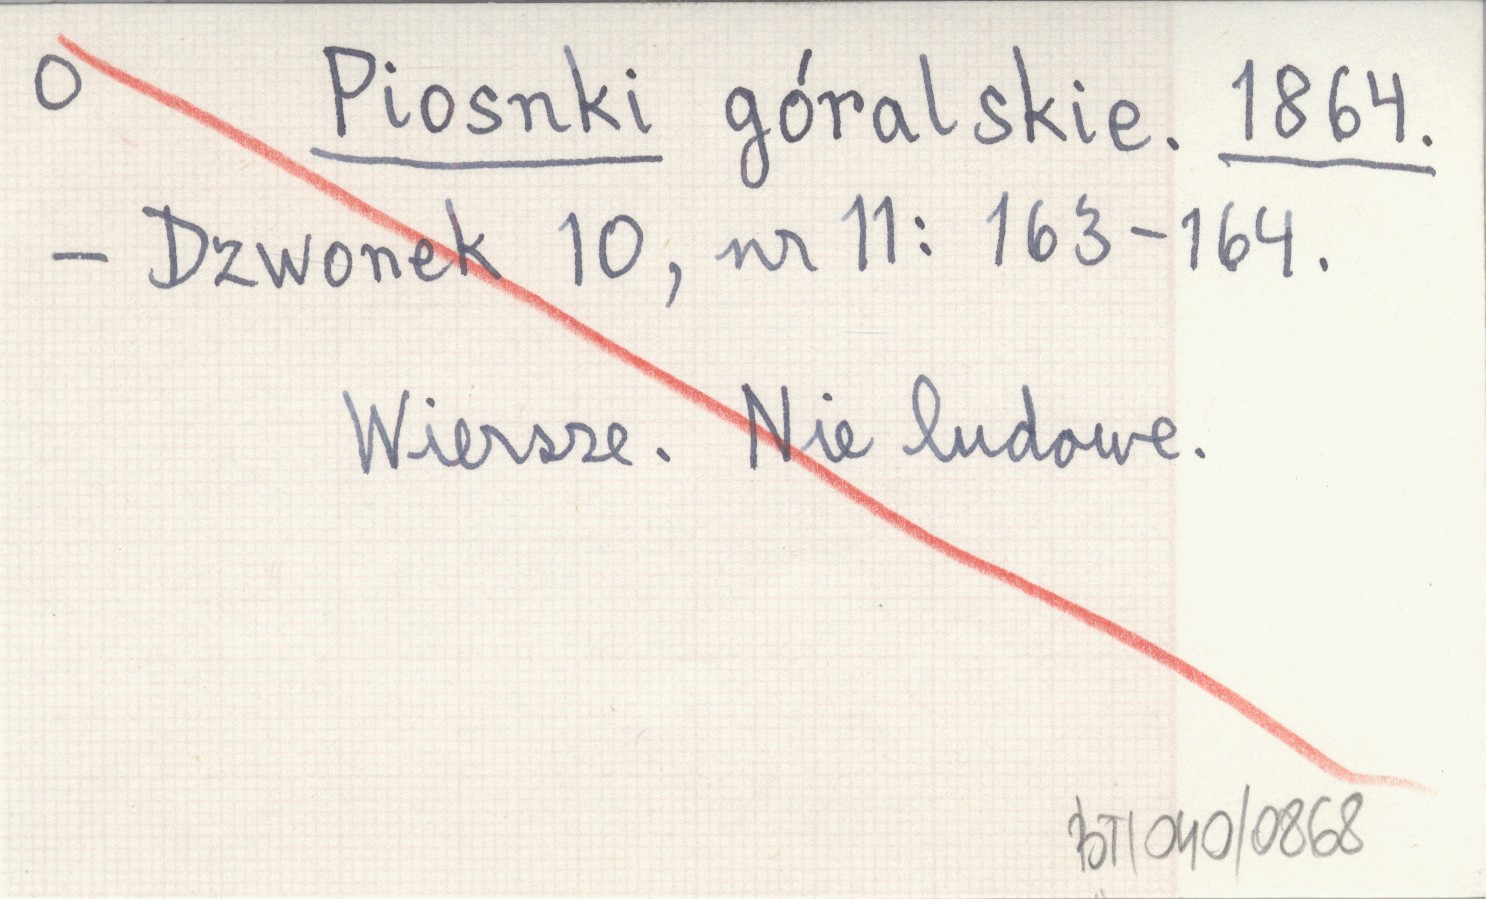 O Piosnki góralskie. 1864.
– Dzwonek 10, nr 11: 163–164.
Wiersze. Nie ludowe.
BT/040/0868